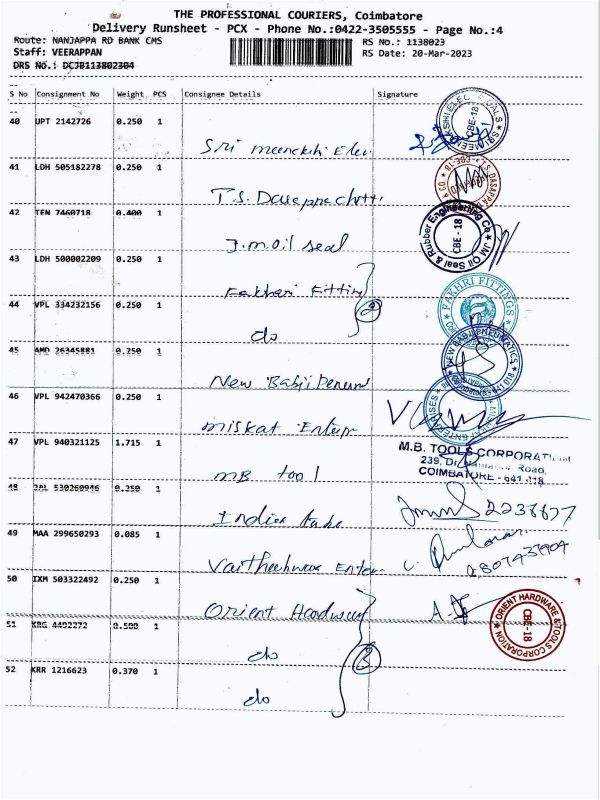 THE PROFESSIONAL COURIERS, Coimbatore
Delivery Runsheet - PCX - Phone No.:0422-3505555 - Page No.:4
Route: NANJAPPA RD BANK CMS RS No.: 1138023
Staff: VEERAPPAN RS Date: 20-Mar-2023
DRS No.: DCJB113802304
S No Consignment No Weight PCS Consignee Details Signature
40 UPT 2142726 0.250 1
Sri meenakshi Elec
41 LDH 505182278 0.250 1
T.S. Dasappachetti
42 TEN 7460718 0.400 1
J.M oil seal
43 LDH 500002209 0.250 1
Fakhari Fitting
44 VPL 334232156 0.250 1
do
2
45 AMD 26345881 0.250 1
New Babji Pneum
46 VPL 942470366 0.250 1
miskat Enterp
47 VPL 940321125 1.715 1
MB tool
48 JAL 530260946 0.250 1
India tube
49 MAA 299650293 0.085 1
Enter
50 IXM 503322492 0.250 1
Orient Hardware
51 KRG 4492272 0.500 1
do
3
52 KRR 1216623 0.370 1
do
CBE-18
T.S. DASAPPA
CBE-18
JM Oil Seal & Rubber Engineering Co
CBE - 18
FAKHRI FITTINGS
NEW BABJI PNEUMATICS
ENTERPRISES
M.B. TOOLS CORPORATION
239, Road,
COIMBATORE - 641 018
ORIENT HARDWARE & TOOLS CORPORATION
CBE-18